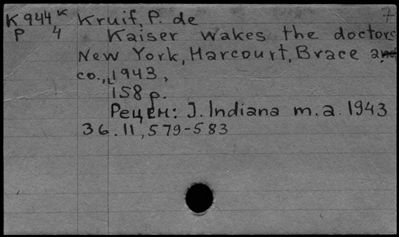 K944ᴷ Kruif, P. de 7
P 4 Kaiser wakes the doctors
New York, Harcourt, Brace and
co., 1943,
158 p.
Рецен: J. Indiana m.a. 1943
36.11, 579-583